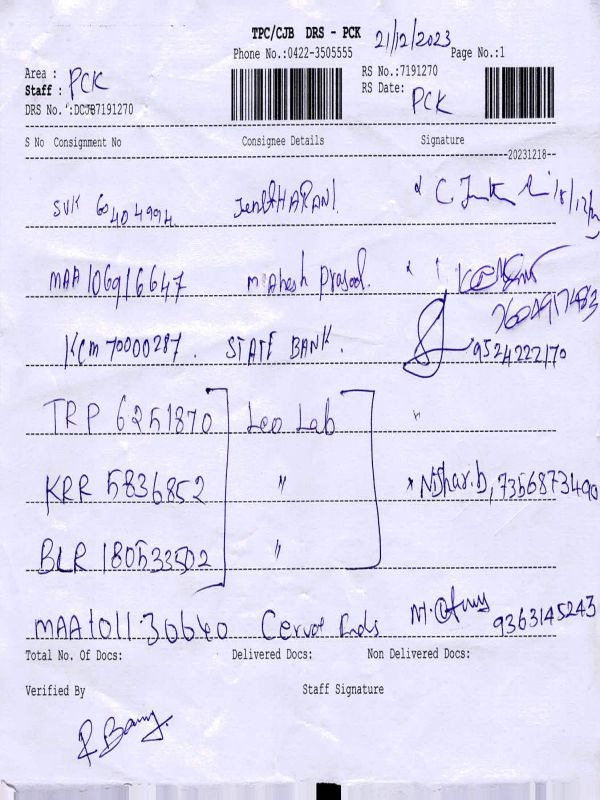 TPC/CJB DRS - PCK 21/12/2023
Phone No.:0422-3505555 Page No.:1
Area : PCK RS No.:7191270
Staff : RS Date: PCK
DRS No. :DCJB7191270
S No Consignment No Consignee Details Signature
20231218
SVK 60404994 18/12/
MAA 106916647 Mahesh Prasad.
7604917483
KCM 70000287. STATE BANK. 9524222170
TRP 6251870 Leo Lab "
KRR 5836852 " Nishar.b, 7356873490
BLR 180533502 "
MAA 101130640 9363145243
Total No. Of Docs: Delivered Docs: Non Delivered Docs:
Verified By Staff Signature